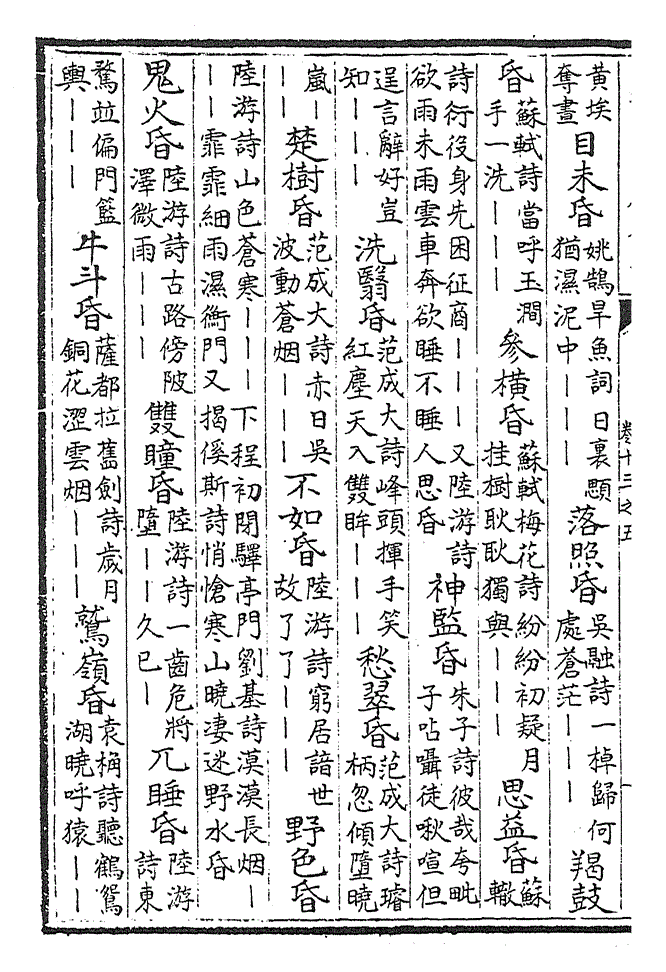 黃埃奪晝目未昏姚鵠旱魚詞日裏顋猶濕泥中｜｜｜落照昏吳融詩一棹歸何處蒼茫｜｜｜羯鼓
昏蘇軾詩當呼玉澗手一洗｜｜｜參橫昏蘇軾梅花詩紛紛初疑月挂樹耿耿獨與｜｜｜思益昏蘇轍
詩衍役身先困征商｜｜｜又陸游詩欲雨未雨雲車奔欲睡不睡人思昏神監昏朱子詩彼哉夸毗子呫囁徒啾喧但
逞言辭好豈知｜｜｜洗翳昏范成大詩峰頭揮手笑紅塵天入雙眸｜｜｜愁翠昏范成大詩璿柄忽傾墮曉
嵐｜｜｜楚樹昏范成大詩赤日吳波動蒼烟｜｜｜不如昏陸游詩窮居諳世故了了｜｜｜野色昏
陸游詩山色蒼寒｜｜｜下程初閉驛亭門劉基詩漠漠長烟｜｜｜霏霏細雨濕衡門又揭傒斯詩悄愴寒山曉凄迷野水昏
鬼火昏陸游詩古路傍陂澤微雨｜｜｜雙瞳昏陸游詩一齒危將墮｜｜久已｜兀睡昏陸游詩東
鶩並偏門籃輿｜｜｜牛斗昏薩都拉舊劍詩歲月銅花澀雲烟｜｜｜鷲嶺昏袁桷詩聽鶴鴛湖曉呼猿｜｜
卷十三之五